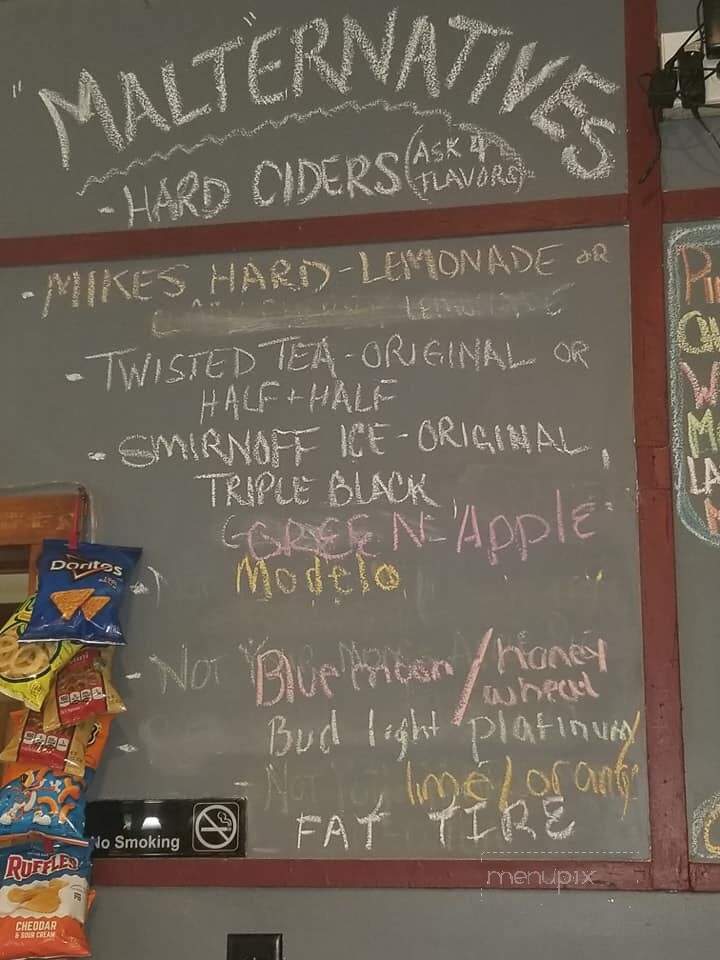 "MALTERNATIVES"
- HARD CIDERS (ASK 4 FLAVORS)
- MIKES HARD - LEMONADE OR
LEMONADE
- TWISTED TEA - ORIGINAL OR
HALF + HALF
- SMIRNOFF ICE - ORIGINAL,
TRIPLE BLACK,
GREEN Apple
Modelo
- Not
Blue moon / Honey
wheat
Bud light platinum
- Not lime / orange
FAT TIRE
Doritos
No Smoking
RUFFLES
CHEDDAR
& SOUR CREAM
menupix